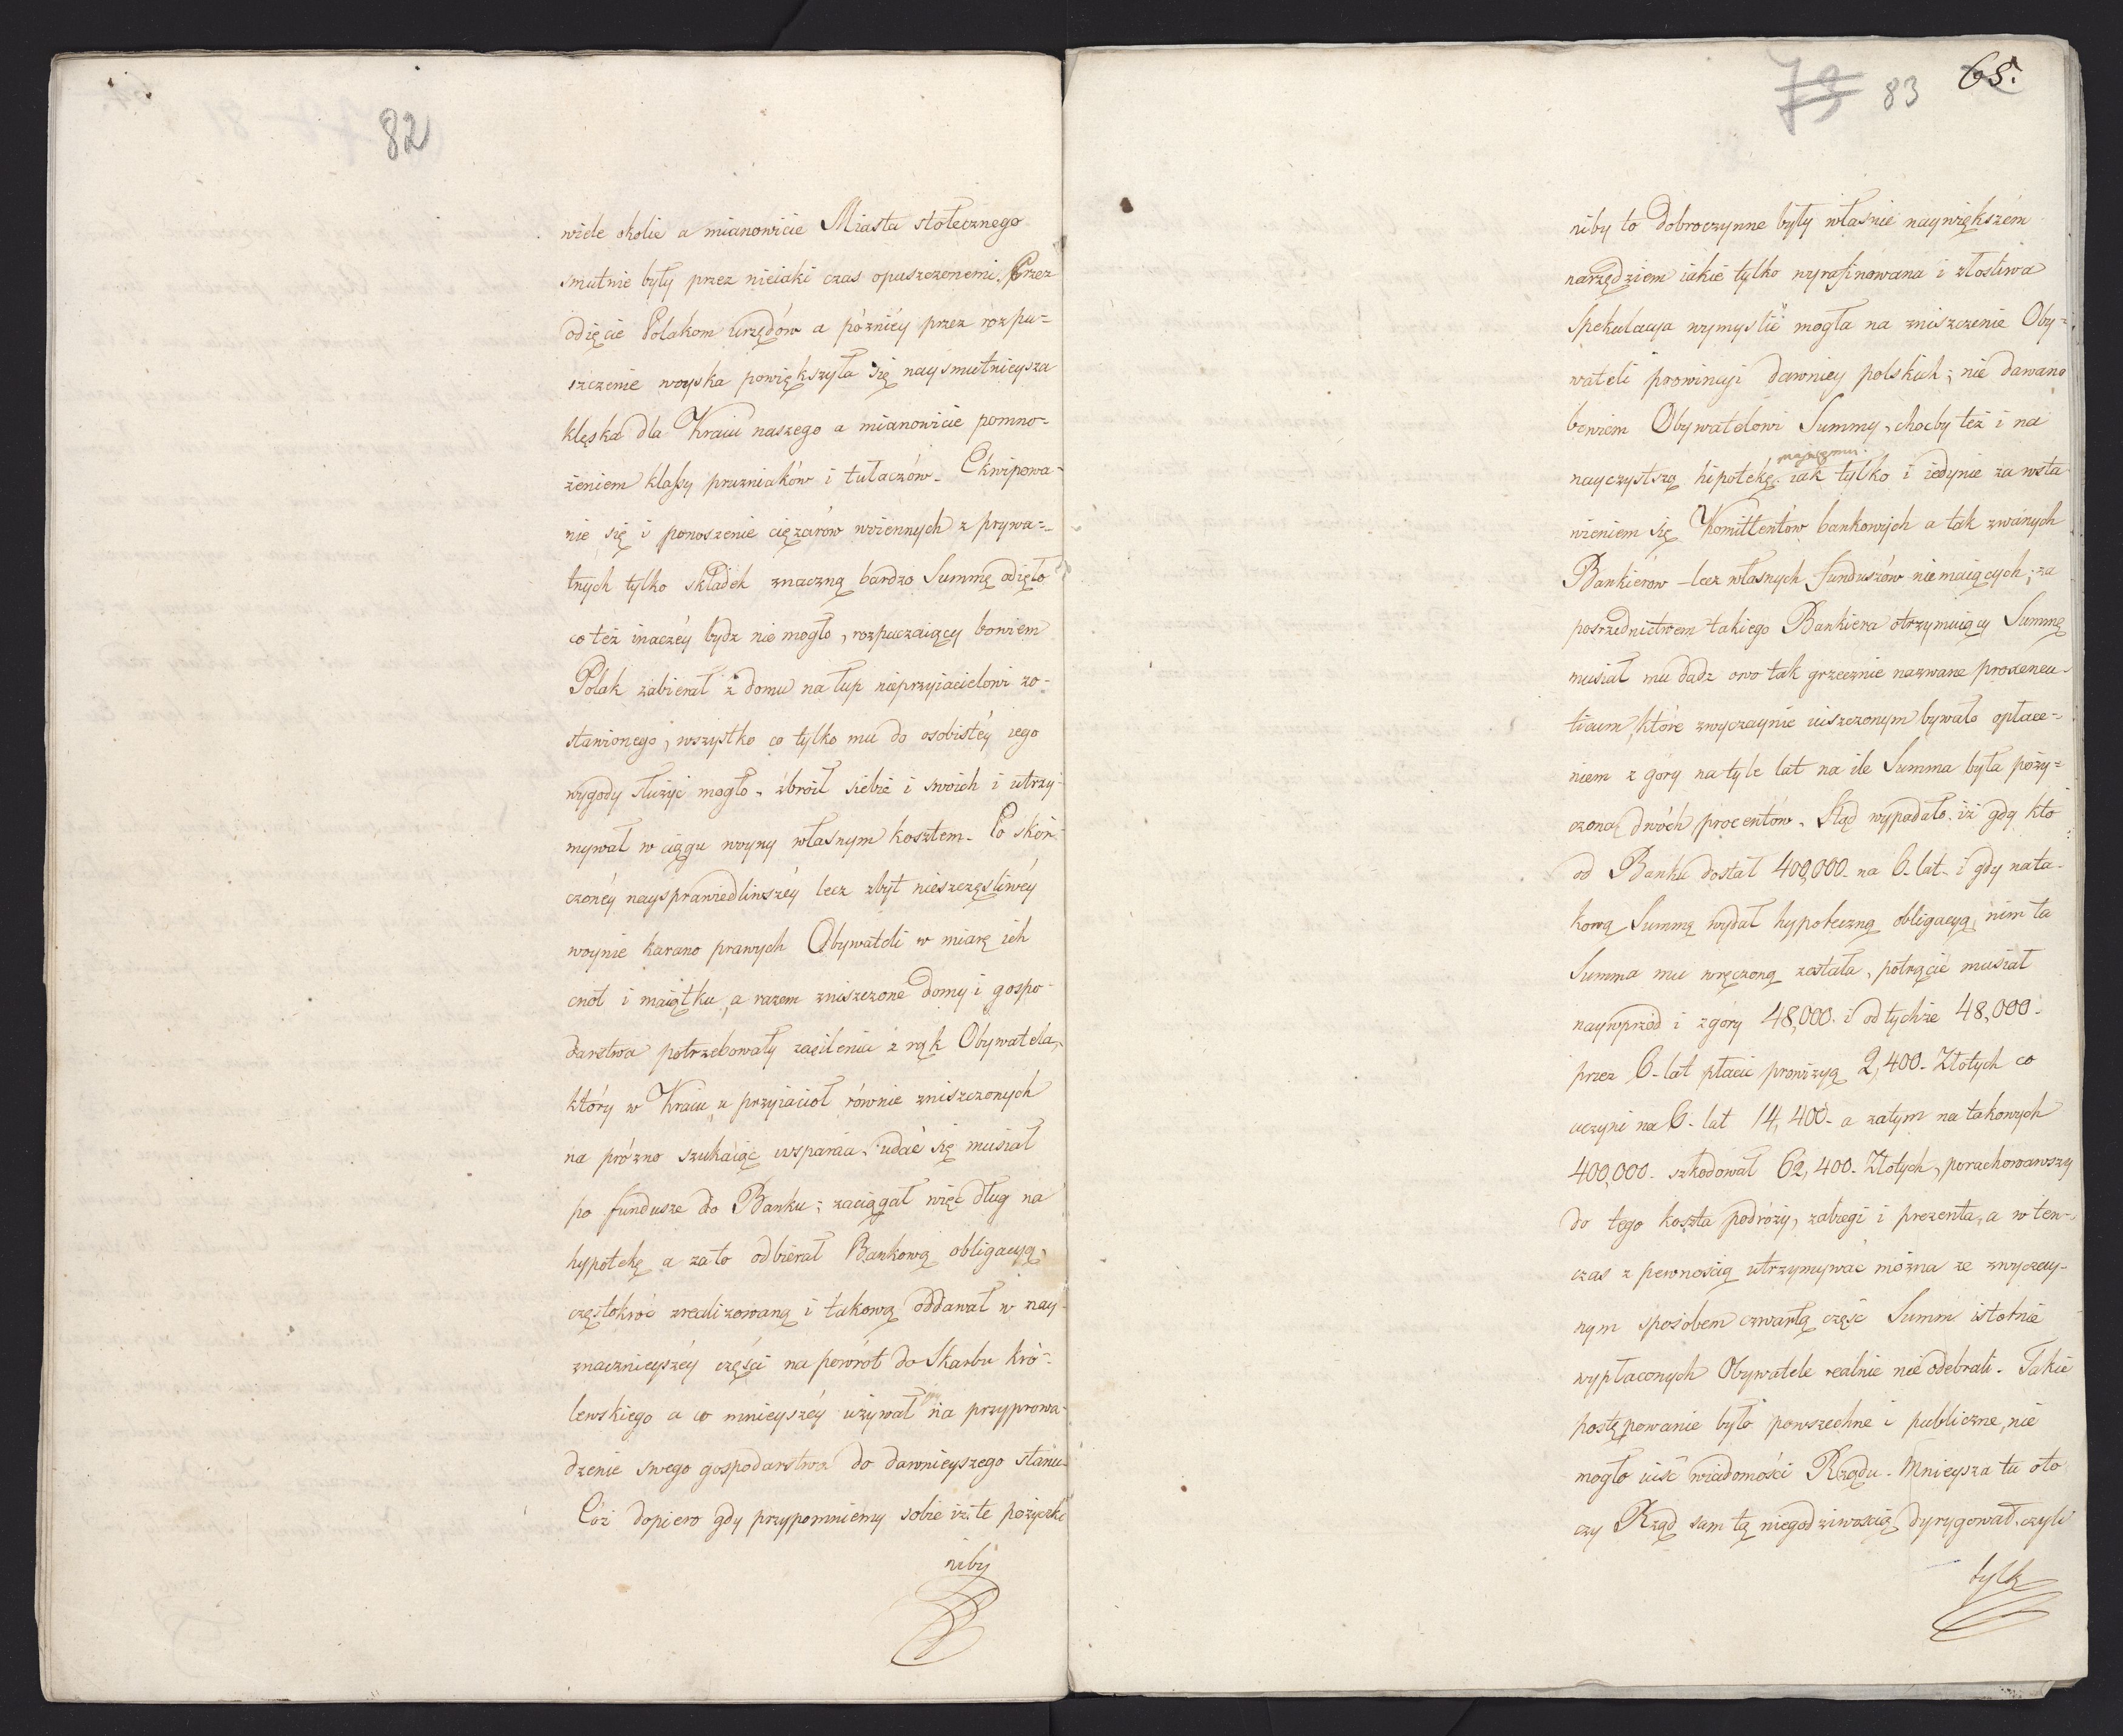 82
wiele okolic a mianowicie Miasta stołecznego
smutnie były przez nieiaki czas opuszczonemi. Przez
odięcie Polakom urzędów a późniéy przez rozpu=
szczenie woyska powiększyła się naysmutnieysza
klęska dla Kraiu naszego a mianowicie pomno-
żeniem klassy prużniaków i tułaczów. Ekwipowa-
nie się i ponoszenie ciężarów woiennych z prywa=
tnych tylko składek znaczną bardzo Summę odięło
co też inaczéy bydz nie mogło, rozpaczaiący bowiem
Polak zabierał z domu na łup nieprzyiacielowi zo-
stawionego, wszystko co tylko mu do osobistéy iego
wygody służyć mogło, zbroił siebie i swoich i utrzy-
mywał w ciągu woyny własnym kosztem. Po skoń-
czonéy naysprawiedliwszéy lecz zbyt nieszczęśliwéy
woynie karano prawych Obywateli w miarę ich
cnot i maiątku, a razem zniszczone domy i gospo-
darstwa potrzebowały zasileniu z rąk Obywatela,
który w Kraiu u przyiacioł równie zniszczonych
na prózno szukaiąc wsparcia, udać się musiał
po fundusze do Banku; zaciągał więc dług na
hypotekę a za to odbierał Bankową obligacyą,
częstokroć zrealizowaną i takową oddawał w nay-
znacznieyszéy części na powrót do Skarbu kró-
lewskiego a co mnieyszéy używał na przyprowa-
dzenie swego gospodarstwa do dawnieyszego stanu.
Cóż dopiero gdy przypomniemy sobie iż te pożyczki
niby
73 83 65.
niby to dobroczynne były własnie naywiększém
narzędziem iakie tylko wyrafinowana i złosliwa
Spekulacya wymyslić mogła na zniszczenie Oby=
wateli prowincyi dawniey polskich; nie dawano
bowiem Obywatelowi Summy, choćby też i na
nayczystszą hipotekę maiącemu iak tylko i iedynie za wsta-
wieniem się Komittentów bankowych a tak zwanych
Bankierów lecz własnych funduszów niemaiących; za
posrzednictwem takiego Bankiera otrzymuiący Summę
musiał mu dadz owo tak grzecznie nazwane proxeneu-
ticum, które zwyczaynie uiszczonym bywało opłace-
niem z góry na tyle lat na ile Summa była poży=
czoną dwóch procentów. Stąd wypadało iż gdy kto
od Banku dostał 400,000. na 6. lat. i gdy na ta-
kową Summę wydał hypoteczną obligacyą, nim ta
Summa mu wręczoną została, potrącić musiał
nayprzód i zgóry 48,000. i od tychże 48,000.
przez 6. lat płacić prowizyą 2,400. Złotych co
uczyni na 6. lat 14,400. a zatym na takowych
400,000. szkodował 62,400. Złotych, porachowawszy
do tego koszta podróży, zabiegi i prezenta, a w ten-
czas z pewnoscią utrzymywać można że zwyczay-
nym sposobem czwartą częsc Summ istotnie
wypłaconych Obywatele realnie nie odebrali. Takie
postępowanie było powszechne i publiczne, nie
mogło uiść wiadomości Rządu. Mnieysza tu oto
czy Rząd sam tą niegodziwoscią dyrygował, czyli
tylk